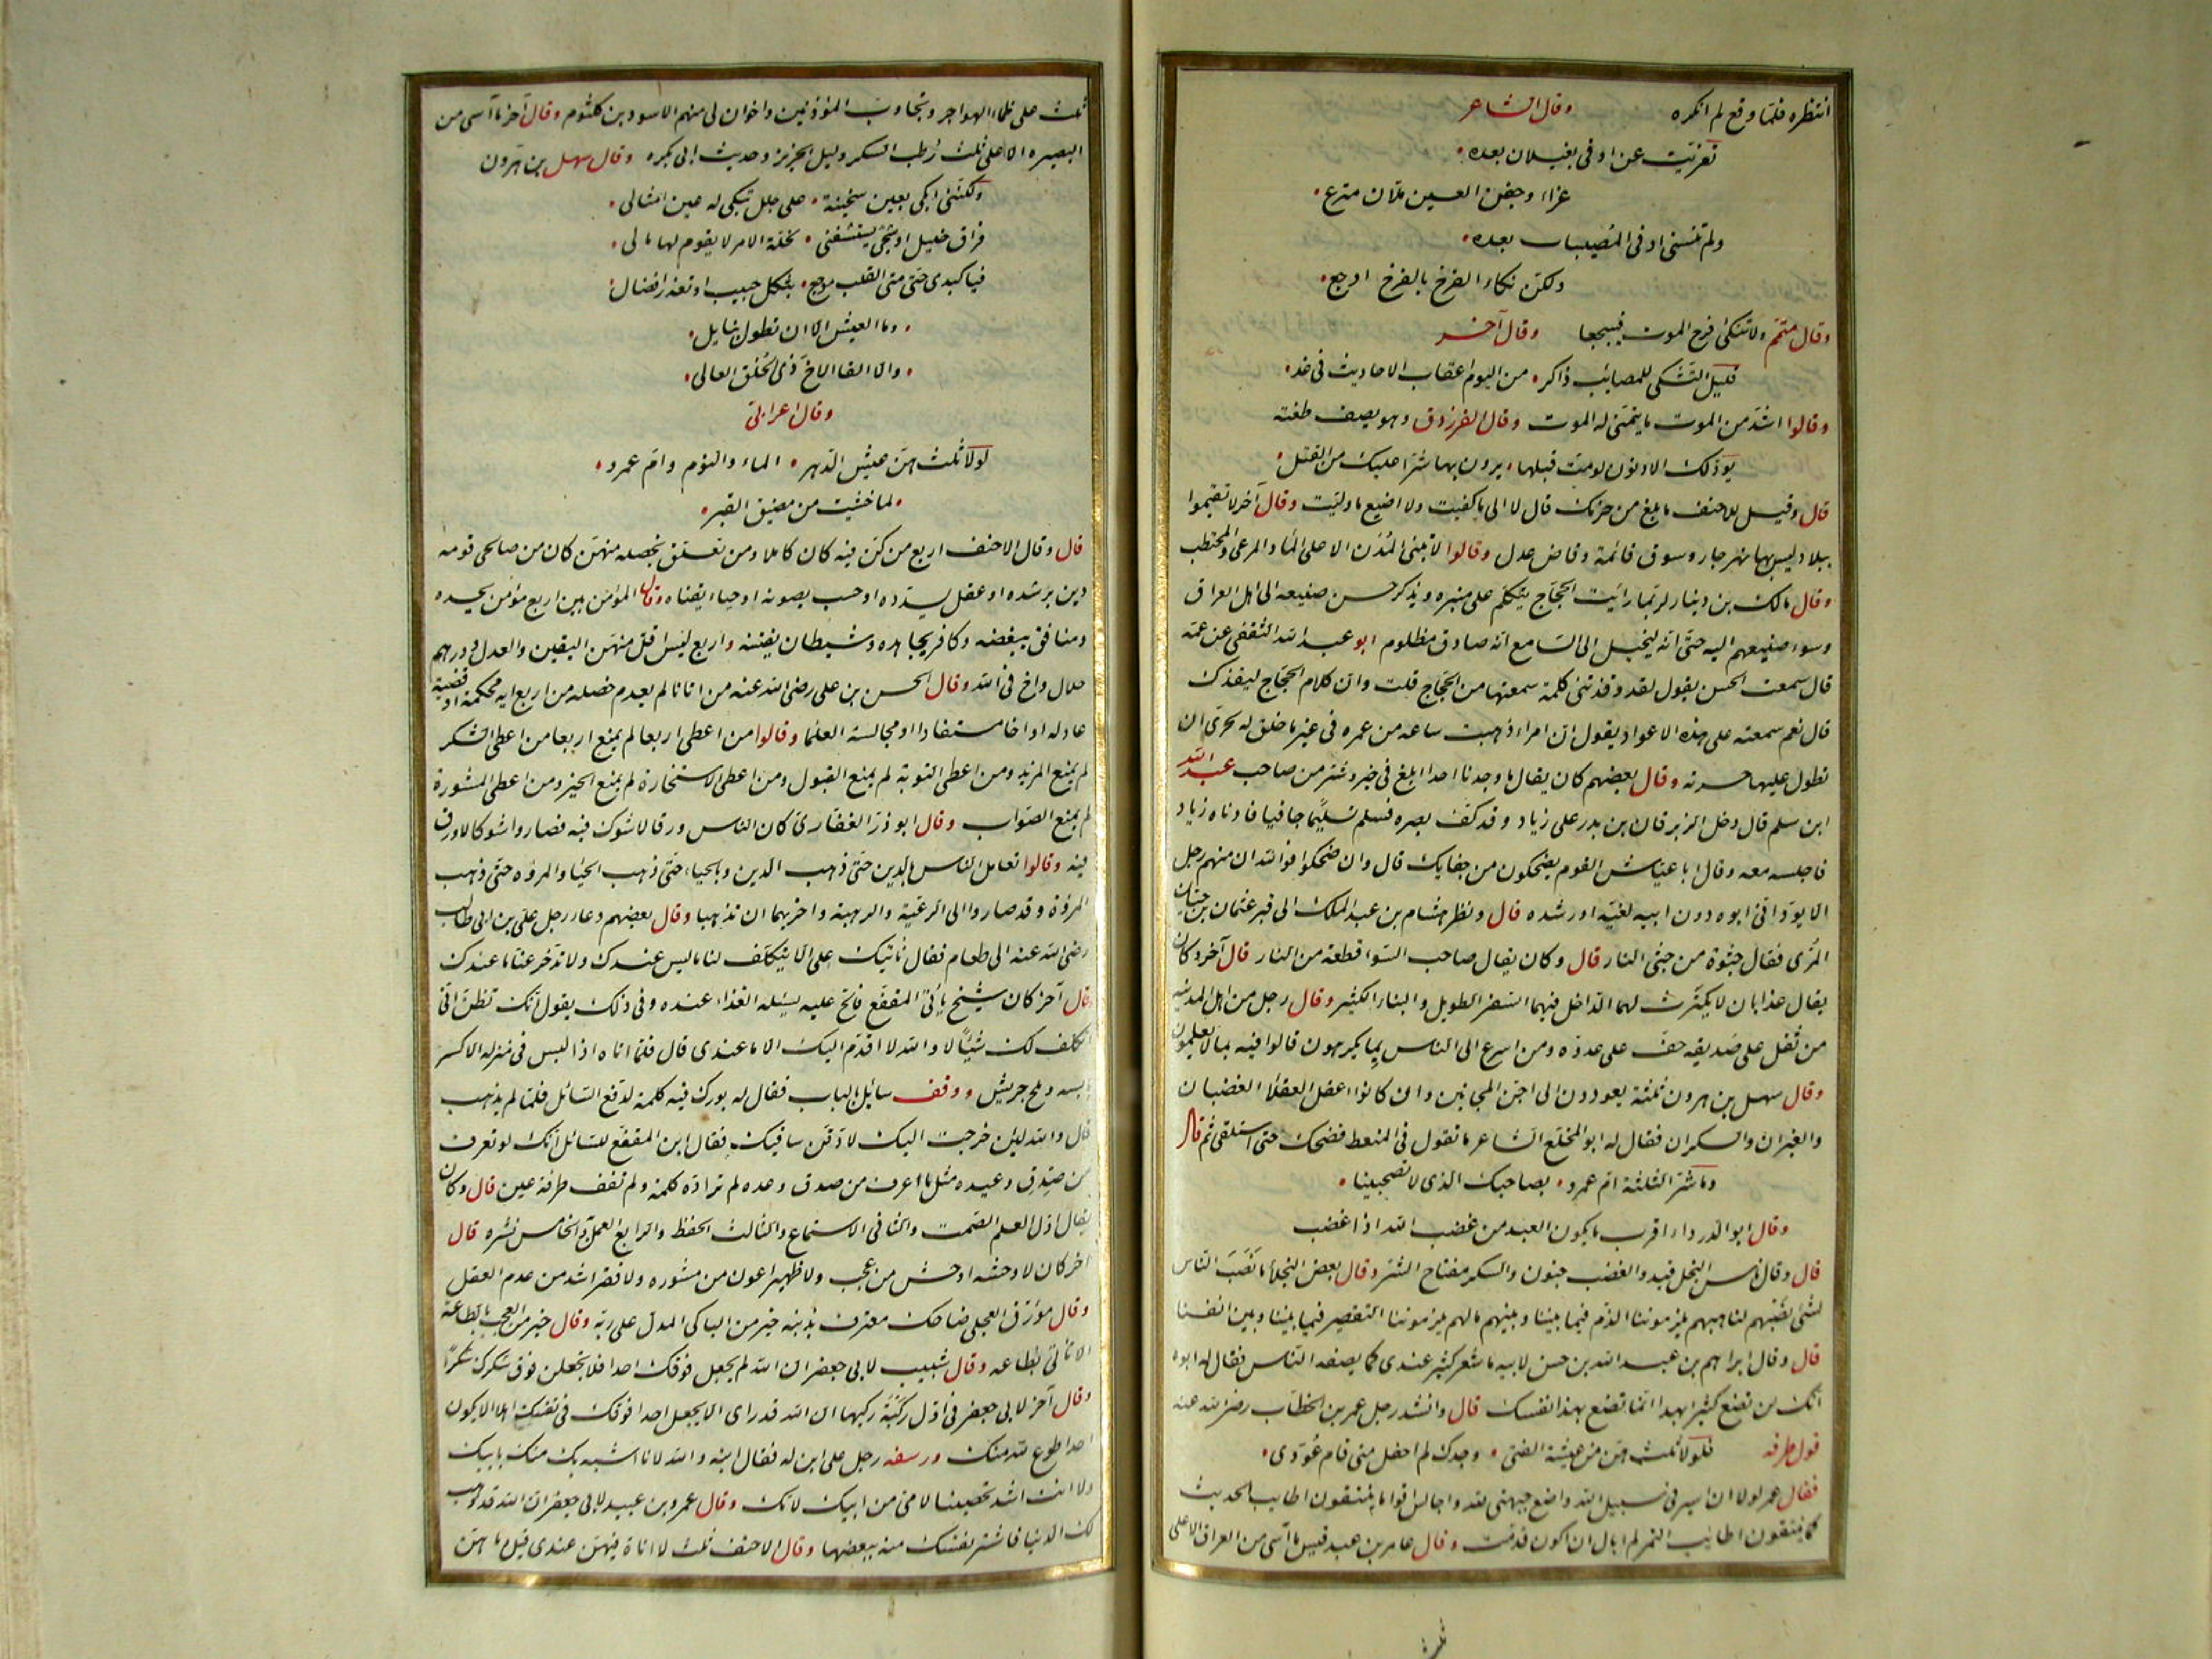 انتظره فلما وقع لم انكره وقال الشاعر
تعزيت عن اوفى بغيلان بعده
عزاء وجفن العين ملآن مترع
ولم تنسنى اوفى المصيبات بعده
ولكن نكاء القرح بالقرح اوجع
وقال متمم ولا تنكئ قرح الموت فييجعا وقال آخر
قليل التشكى للمصائب ذاكر من اليوم اعقاب الاحاديث فى غد
وقالوا اشد من الموت ما يتمنى له الموت وقال الفرزدق وهو يصف طعنة
يود لك الادنون لو مت قبلها يرون بها شرا عليك من القتل
قال وقيل للاحنف ما بلغ من حزمك قال لا الى ما كفيت ولا اضيع ما وليت وقال آخر لا تقيموا
ببلاد ليس بها نهر جار وسوق قائمة وقاض عدل وقالوا لا تبنى المدن الا على الماء والمرعى والمحتطب
وقال مالك بن دينار لربما رأيت الحجاج يتكلم على منبره ويذكر حسن صنيعه الى اهل العراق
وسوء صنيعهم اليه حتى انه ليخيل الى السامع انه صادق مظلوم ابو عبد الله الثقفى عن عمه
قال سمعت الحسن يقول لقد وقذتنى كلمة سمعتها من الحجاج قلت وان كلام الحجاج ليقذك
قال نعم سمعته على هذه الاعواد يقول ان امراء ذهبت ساعة من عمره فى غير ما خلق له لحرى ان
تطول عليها حسرته وقال بعضهم كان يقال ما وجدنا احدا ابلغ فى خير وشر من صاحب عبد الله
ابن سلم قال دخل الزبرقان بن بدر على زياد وقد كف بصره فسلم تسليما جافيا فادناه زياد
فاجلسه معه وقال ابا عياش القوم يضحكون من جفايك قال وان ضحكوا فوالله ان منهم رجل
الا يود انى ابوه دون ابيه لغية او رشدة قال ونظر هشام بن عبد الملك الى قبر عثمان بن حيان
المرى فقال جثوة من جثى النار قال وكان يقال صاحب السوء قطعة من النار قال آخر وكان
يقال عذابان لا يكترث لهما الداخل فيهما السفر الطويل والبناء الكثير وقال رجل من اهل المدينة
من ثقل على صديقه خف على عدوه ومن اسرع الى الناس بما يكرهون قالوا فيه بما لا يعلمون
وقال سهل بن هرون ثلثة يعودون الى اجن المجانين وان كانوا اعقل العقلاء الغضبان
والغيران والسكران فقال له ابو المخلع الشاعر ما تقول فى المنعظ فضحك حتى استلقى ثم قال
وما شر الثلثة ام عمرو بصاحبك الذى لا تصبحينا
وقال ابو الدرداء اقرب ما يكون العبد من غضب الله اذا غضب
قال وقال اياس البخل قيد والغضب جنون والسكر مفتاح الشر وقال بعض البخلاء ما نصب الناس
لشئ نصبهم لنا هبهم يلزموننا الذم فيما بيننا وبينهم ما لهم يلزموننا التقصير فيما بيننا وبين انفسنا
قال وقال ابراهيم بن عبد الله بن حسن لابيه ما شعر كثير عندى كما يصفه الناس فقال له ابوه
انك لن تضع كثيرا بهذا انما تضع بهذا نفسك قال وانشد رجل عمر بن الخطاب رضى الله عنه
قول طرفه فلولا ثلث هن من عيشة الفتى وجدك لم احفل متى قام عودى
فقال عمر لولا ان اسير فى سبيل الله واضع جبهتى لله واجالس اقواما ينتقون اطايب الحديث
كما ينتقون اطايب التمر لم ابال ان اكون قد مت وقال عامر بن عبد قيس ما آسى من العراق الا على
ثلث
ثلث على ظماء الهواجر وتجاوب المؤذنين واخوان لى منهم الاسود بن كلثوم وقال آخر ما آسى من
البصرة الا على ثلث رطب السكر وليل الحزيز وحديث ابى بكره وقال سهل بن هرون
ولكننى ابكى بعين سخينة على جلل تبكى له عين امثالى
فراق خليل او شجى يستشفنى لخلة الامر لا يقوم لها مالى
فيا كبدى حتى متى القلب موجع بثكل حبيب او تعذر افضال
وما العيش الا ان تطول بنايل
والا لقا الاخ ذى الخلق العالى
وقال اعرابى
لولا ثلث هن عيش الدهر الماء والنوم وام عمرو
لما خشيت من مضيق القبر
قال وقال الاحنف اربع من كن فيه كان كاملا ومن تعلق بخصلة منهن كان من صالحى قومه
دين يرشده او عقل يسدده او حسب يصونه او حياء يقناه وقال المؤمن بين اربع مؤمن يحسده
ومنافق يبغضه وكافر يجاهده وشيطان يفتنه واربع ليس اقل منهن اليقين والعدل ودرهم
حلال واخ فى الله وقال الحسن بن على رضى الله عنه من اتانا لم يعدم خصلة من اربع آية محكمة او قضية
عادلة او اخا مستفادا او مجالسة العلما وقالوا من اعطى اربعا لم يمنع اربعا من اعطى الشكر
لم يمنع المزيد ومن اعطى التوبة لم يمنع القبول ومن اعطى الاستخارة لم يمنع الخير ومن اعطى المشورة
لم يمنع الصواب وقال ابو ذر الغفارى كان الناس ورقا لا شوك فيه فصاروا شوكا لا ورق
فيه وقالوا تعامل الناس بالدين حتى ذهب الدين وبالحياء حتى ذهب الحياء والمروة حتى ذهب
المروة وقد صاروا الى الرغبة والرهبة واحر بهما ان تذهبا وقال بعضهم دعا رجل على بن ابى طالب
رضى الله عنه الى طعام فقال نأتيك على الا يتكلف لنا ما ليس عندك ولا تدخر عنا ما عندك
وقال آخر كان شيخ يأتى المقفع فالح عليه يسئله الغذاء عنده وفى ذلك يقول انك تظن انى
اتكلف لك شيئا لا والله لا اقدم اليك الا ما عندى قال فلما اتاه اذا ليس فى منزله الا كسر
يابسة وملح جريش ووقف سائل بالباب فقال له بورك فيه كلمة لدفع السائل فلما لم يذهب
قال والله لئن خرجت اليك لادقن ساقيك فقال ابن المقفع للسائل انك لو تعرف
من صدق وعيده مثل ما اعرف من صدق وعده لم تراده كلمة ولم تقف طرفة عين قال وكان
يقال اول العلم الصمت والثانى الاستماع والثالث الحفظ والرابع العمل به والخامس نشره قال
آخر كان لا وحشة اوحش من عجب ولا ظهير اعون من مشوره ولا فقر اشد من عدم العقل
وقال مؤرق العجلى ضاحك معترف بذنبه خير من الباكى المدل على ربه وقال خير من العجب بالطاعة
الا تاتى بطاعة وقال شبيب لابى جعفر ان الله لم يجعل فوقك احدا فلا تجعلن فوق شكرك شكرا
وقال آخر لابى جعفر فى اول ركبة ركبها ان الله قد راى الا يجعل احدا فوقك فى نفسك اهلا الا يكون
احد اطوع لله منك ورسفه رجل على ابن له فقال ابنه والله لانا اشبه بك منك بابيك
ولانت اشد تحصينا لامى من ابيك لامك وقال عمرو بن عبيد لابى جعفر ان الله قد وهب
لك الدنيا فاشتر نفسك منه ببعضها وقال الاحنف ثلث لا اناة فيهن عندى قيل ما هن